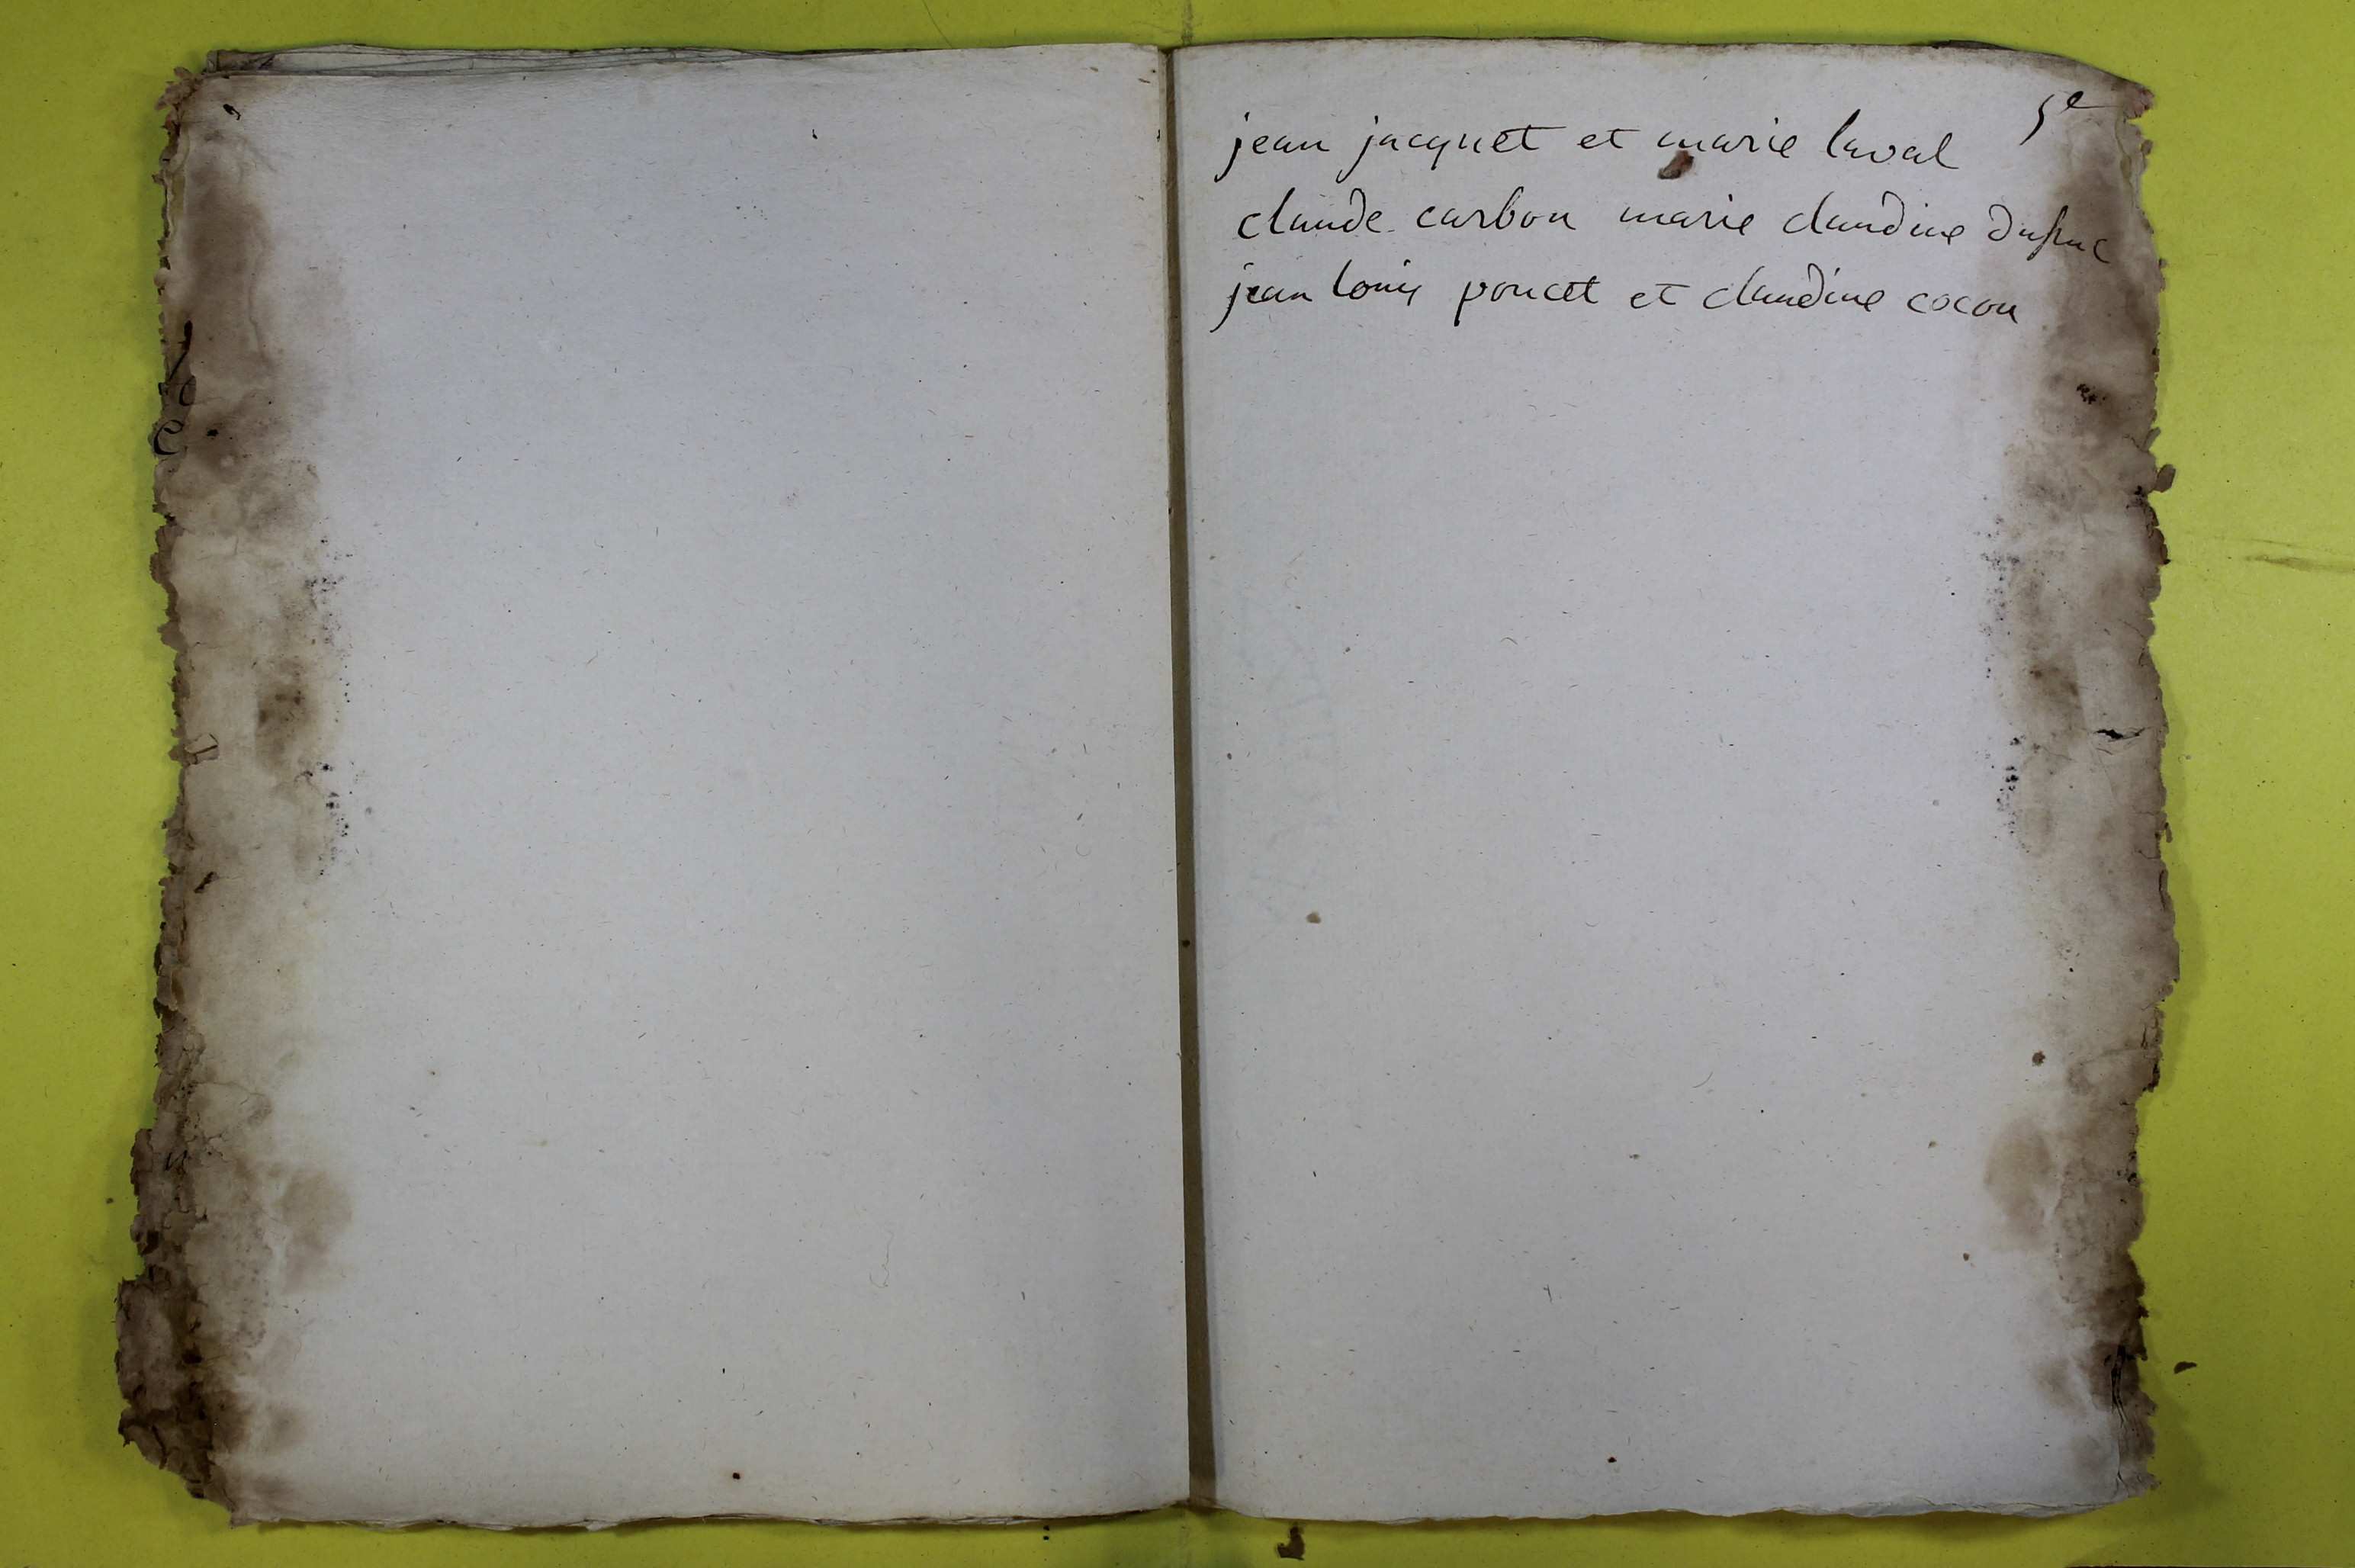 5e
jean jacquet et marie laval
claude carbon marie claudine
jean louis poncet et claudine cocon